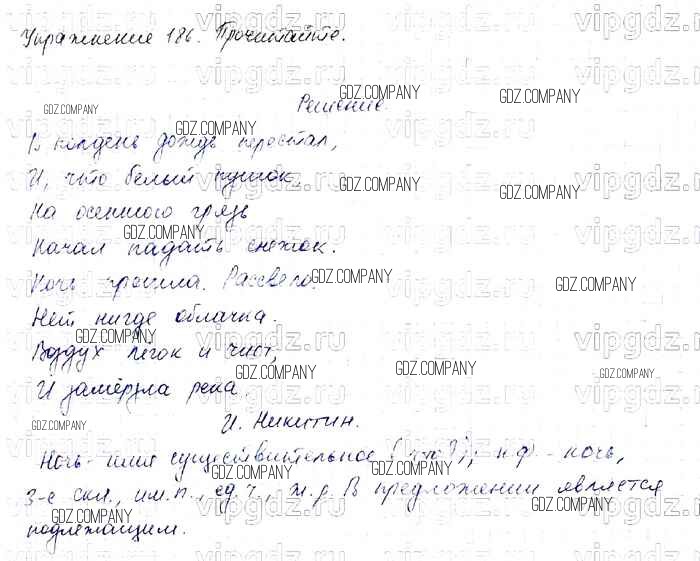 Упражнение 186. Прочитайте.
Решение
В полдень дождь перестал,
И, что белый пушок,
На осеннюю грязь
Начал падать снежок.
Ночь прошла. Рассвело.
Нет нигде облачка.
Воздух лёгок и чист,
И замёрзла река.
И. Никитин.
Ночь - имя существительное (что?), н.ф. - ночь,
3-е скл., им.п., ед.ч., ж.р. В предложении является
подлежащим.